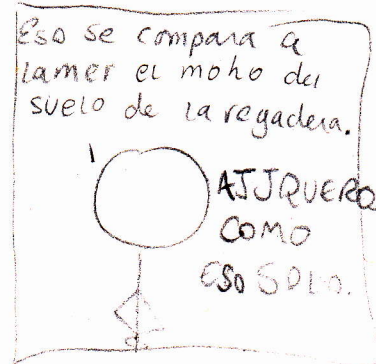 Eso se compara a
lamer el moho del
suelo de la regadera.
AJJQUEROSO
COMO
ESO SOLO.